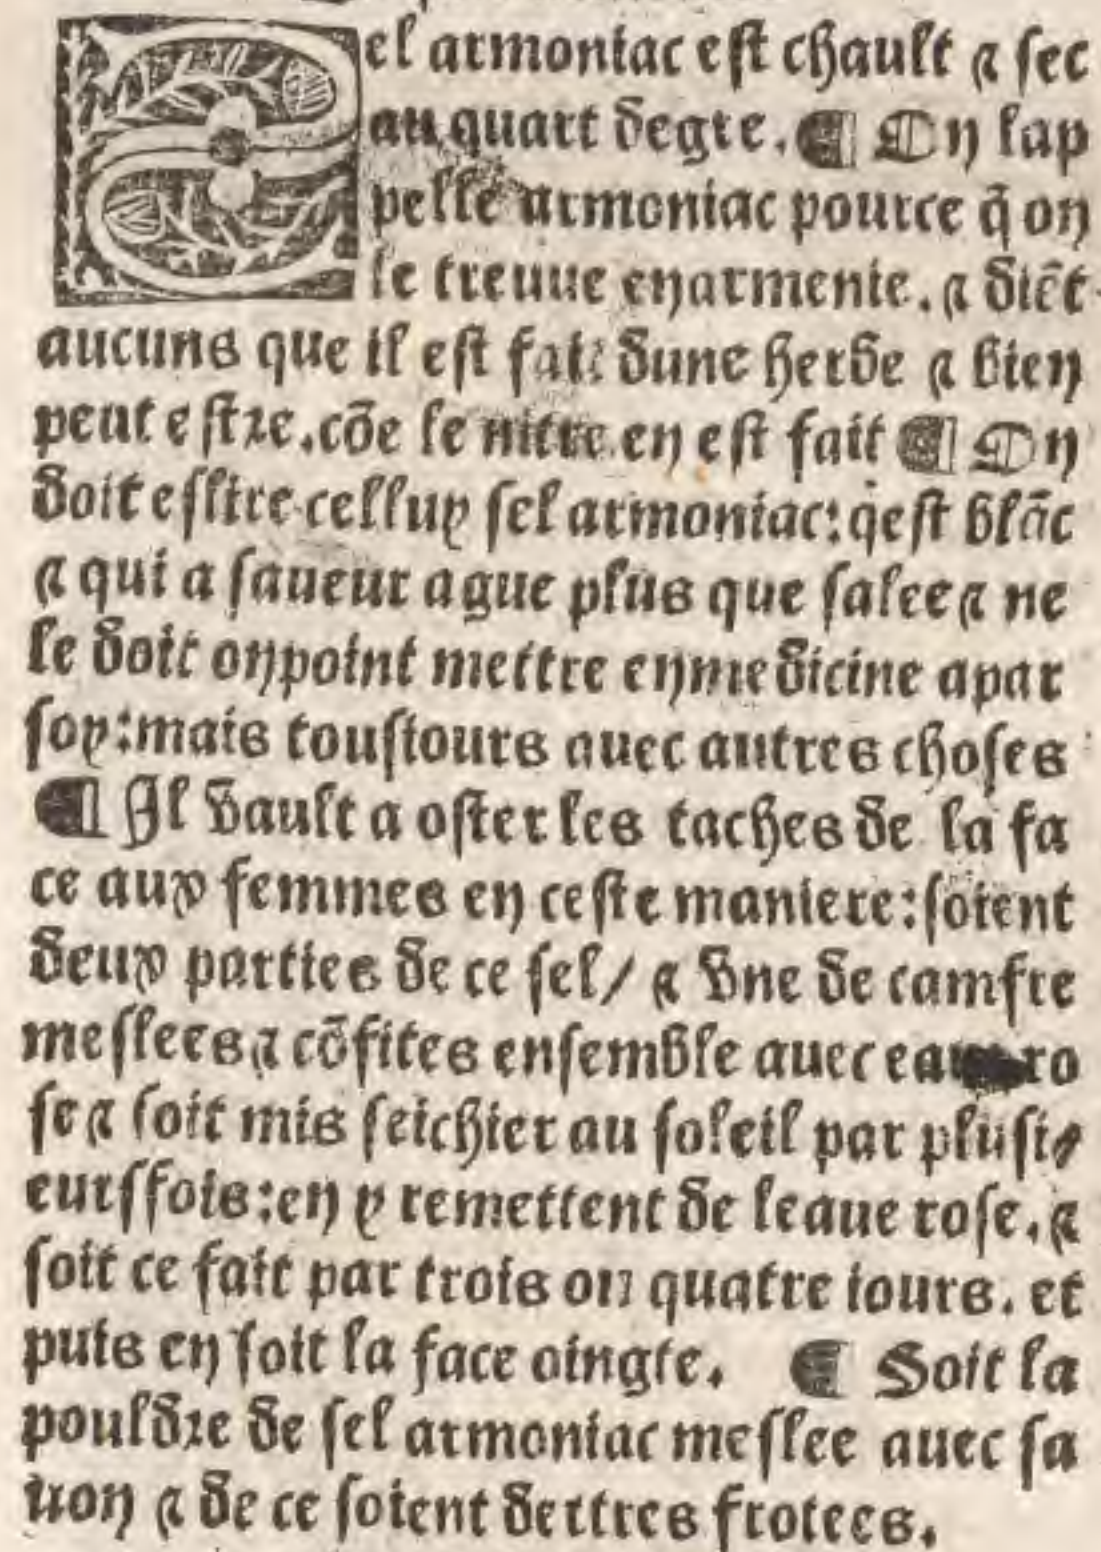 Sel armoniac est chault ⁊ sec
au quart degre. ¶ On lap
pelle armoniac pource q̃ on
le treuue enarmenie. ⁊ diẽt
aucuns que il est fait dune herbe ⁊ bien
peut estre. cõe le nitre en est fait ¶ On
doit eslire celluy sel armoniac: q̇ est blãc
⁊ qui a saueur ague plus que salee ⁊ ne
le doit on point mettre en medicine apar
soy: mais tousiours auec autres choses
¶ Il vault a oster les taches de la fa
ce aux femmes en ceste maniere: soient
deux parties de ce sel / ⁊ vne de camfre
meslees ⁊ cõfites ensemble auec eaue ro
se ⁊ soit mis seichier au soleil par plusi⸗
eurs fois: en y remettent de leaue rose. ⁊
soit ce fait par trois ou quatre iours. et
puis en soit la face oingte. ¶ Soit la
pouldre de sel armoniac meslee auec sa
uon ⁊ de ce soient dertres frotees.